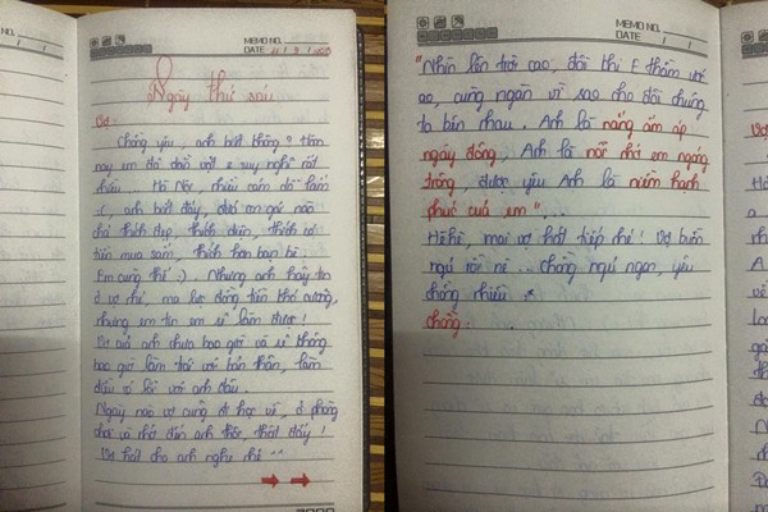 NO.
MEMO NO.
DATE 21 / 9 / 2013
Ngày thứ sáu
Vợ:
Chồng yêu, anh biết không? Hôm
nay em đã dằn vặt & suy nghĩ rất
nhiều... Hà Nội, nhiều cám dỗ lắm
:(, anh biết đấy, đứa con gái nào
chả thích đẹp, thích diện, thích có
tiền mua sắm, thích hơn bạn bè.
Em cũng thế :). Nhưng anh hãy tin
ở vợ nhé, ma lực đồng tiền khó cưỡng,
nhưng em tin em sẽ làm được!
Vợ của anh chưa bao giờ và sẽ không
bao giờ làm trái với bản thân, làm
điều có lỗi với anh đâu.
Ngày nào vợ cũng đi học về, ở phòng
chơi và nhớ đến anh thôi, thật đấy!
Vợ hát cho anh nghe nhé ^^
MEMO NO.
DATE / /
"Nhìn lên trời cao, đôi khi E thầm ước
ao, cùng ngàn vì sao cho đôi chúng
ta bên nhau. Anh là nắng ấm áp
ngày đông, Anh là nỗi nhớ em ngóng
trông, được yêu Anh là niềm hạnh
phúc của em"...
Hêhê, mai vợ hát tiếp nhé! Vợ buồn
ngủ rồi nè... chồng ngủ ngon, yêu
chồng nhiều :*
Chồng: